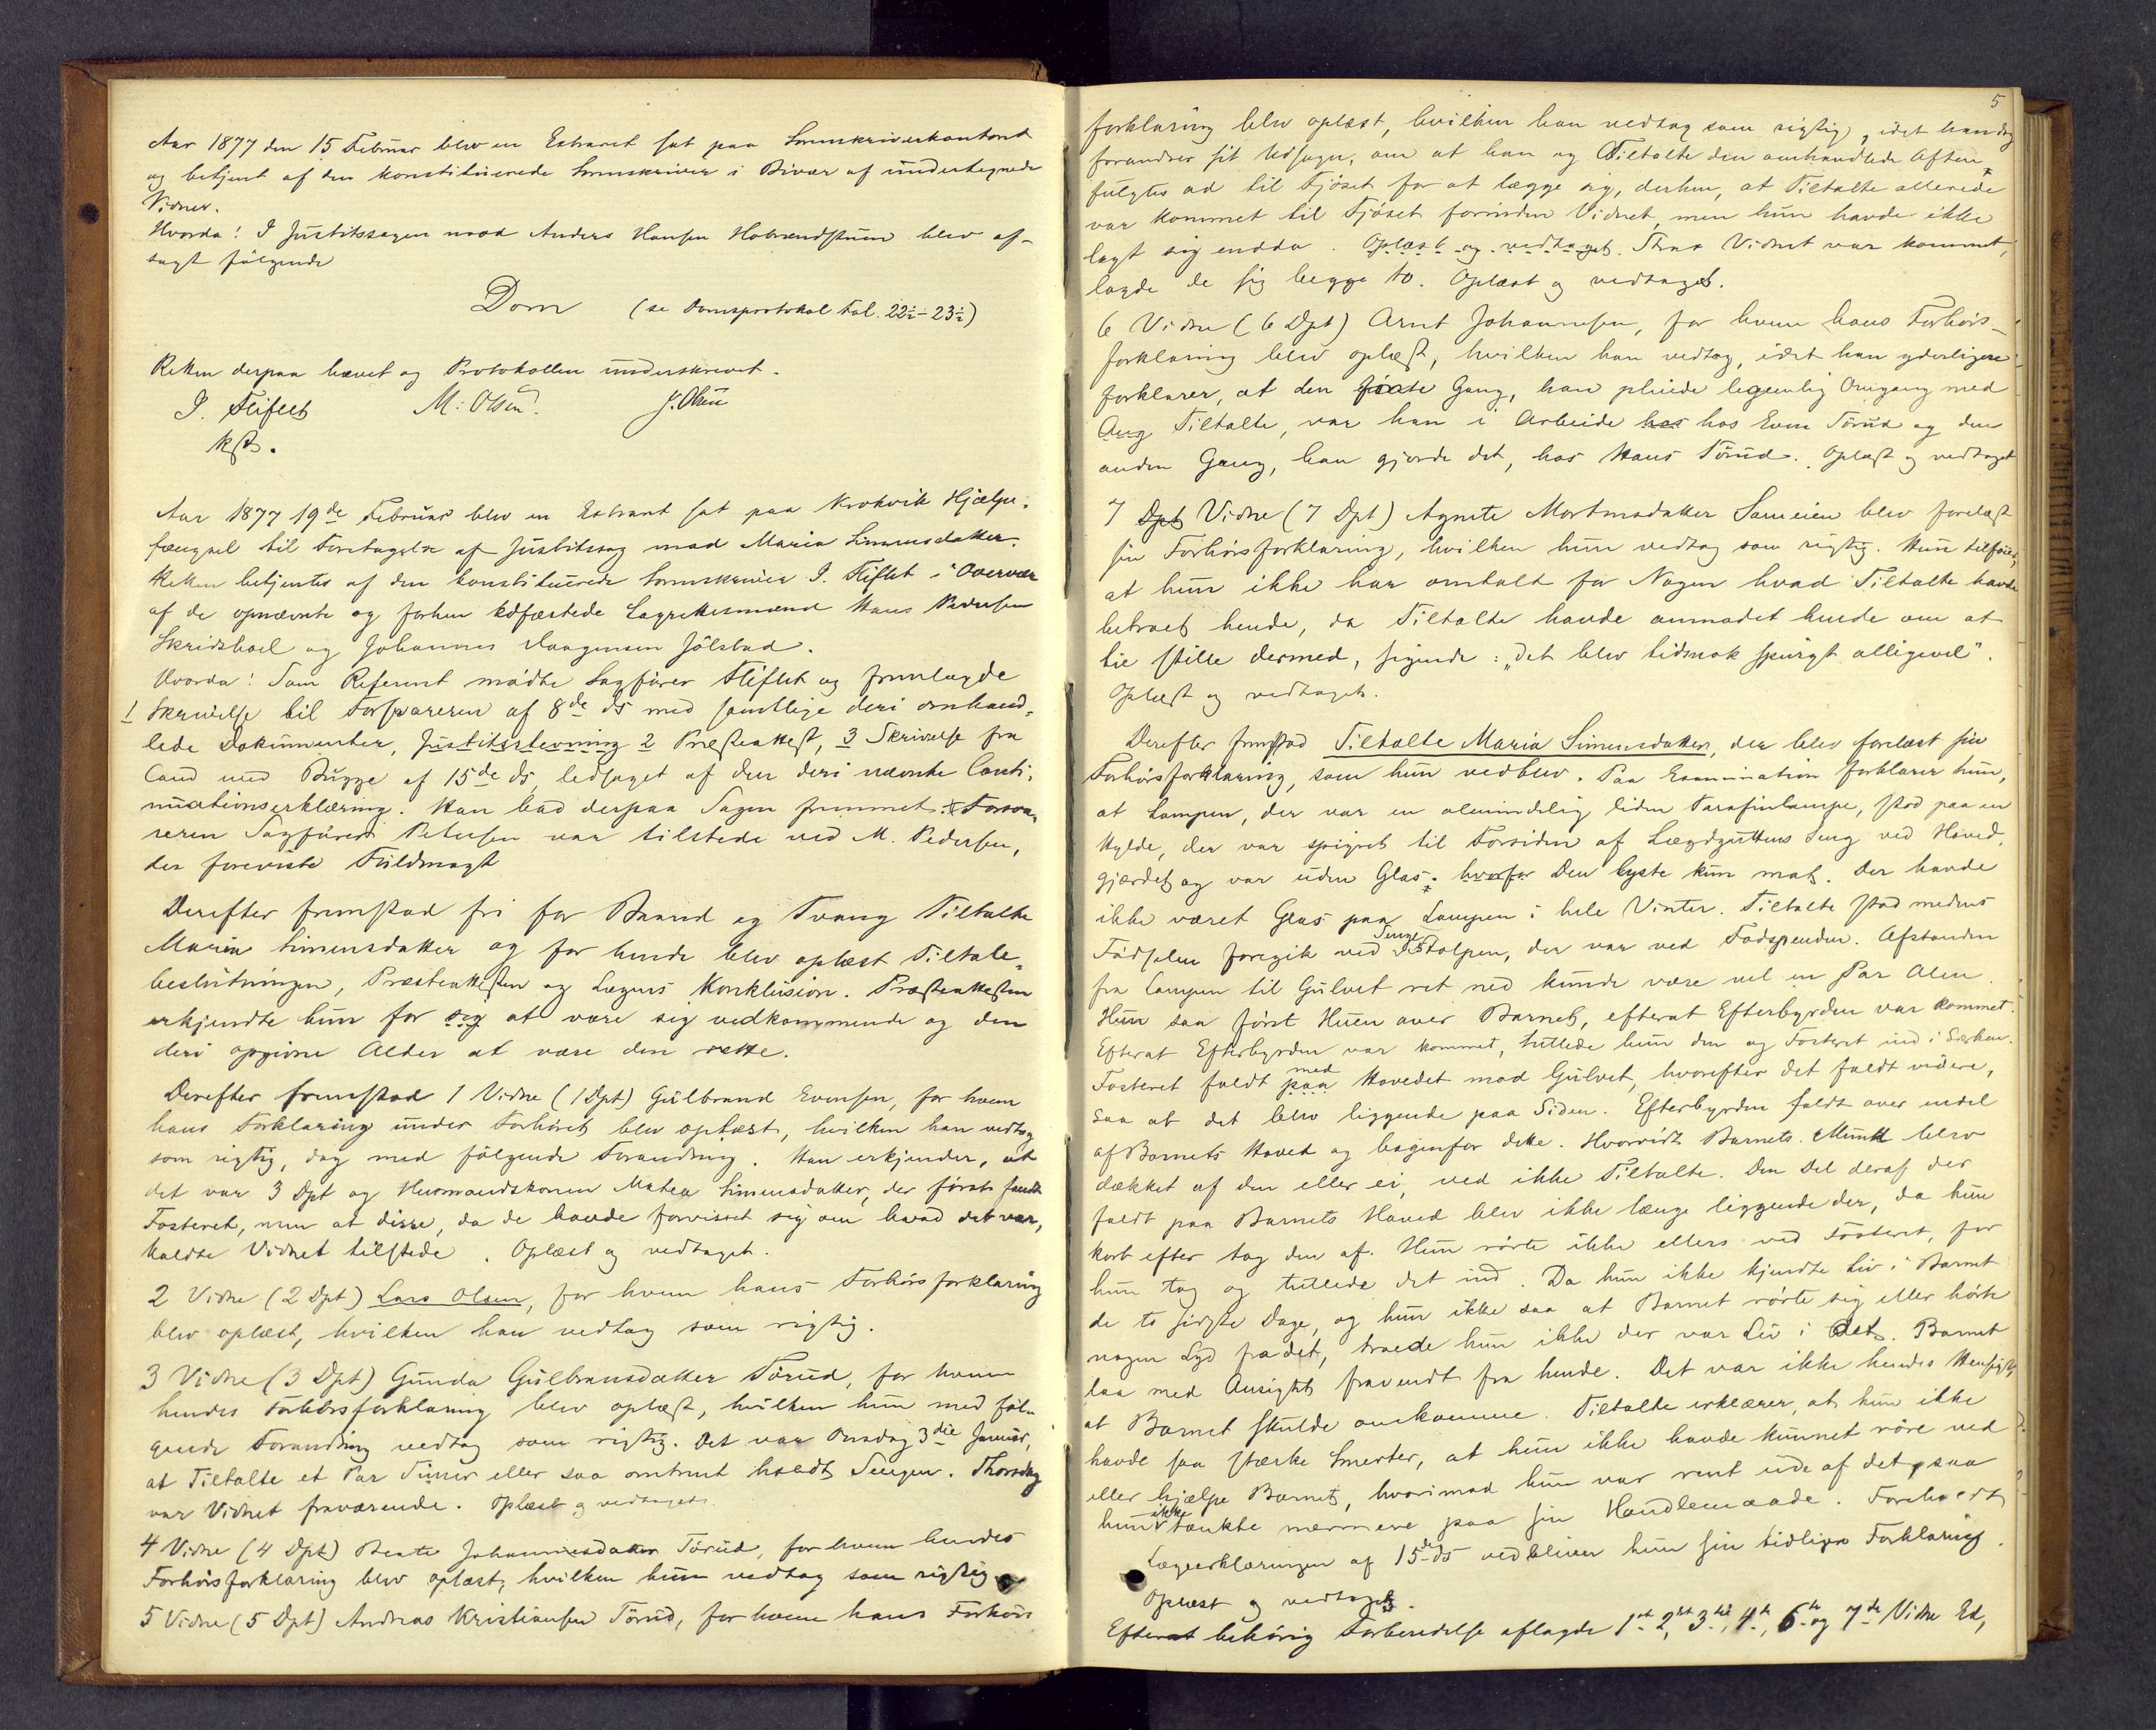 Aar 1877 den 15 Februar blev en Extraret sat paa Sorenskriverkontoret
og betjent af den konstituerede Sorenskriver i Bivær af undertegnede
Vidner.
Hvorda! I Justitssagen mod Anders Hansen Hobrendstuen blev af-
sagt følgende
Dom (se Domsprotokol fol. 22½-23½)
Retten derpaa hævet og Protokollen underskrevet.
I. Fliflet M. Olsen. J. Olsen
kst.
Aar 1877 19de Februar blev en Extraret sat paa Krokvik Hjælpe-
fængsel til Foretagelse af Justitssag mod Maria Simensdatter.
Retten betjentes af den konstituerede Sorenskriver I. Fliflet i Overvær
af de opnævnte og forhen edfæstede Lagrettesmænd Hans Pedersen
Skridshoel og Johannes Haagensen Jølstad.
Hvorda! Som Referent mødte Sagfører Fliflet og fremlagde
1 Skrivelse til Forsvareren af 8de ds med samtlige deri omhand-
lede Dokumenter, Justitsstevning 2 Præsteattest, 3 Skrivelse fra
Cand med Bugge af 15de ds, ledsaget af den deri nævnte Conti-
nuationserklæring. Han bad derpaa Sagen fremmet. Forsva-
reren Sagfører Petersen var tilstede ved M. Pedersen,
der foreviste Fuldmagt
Derefter fremstod fri for Baand og Tvang Tiltalte
Maria Simensdatter og for hende blev oplæst Tiltale-
beslutningen, Præsteattesten og Lægens Konklusion. Præsteattesten
erkjendte hun for seg at være sig vedkommende og den
deri opgivne Alder at være den rette.
Derefter fremstod 1 Vidne (1 Dpt) Gulbrand Evensen, for hvem
hans Forklaring under Forhøret blev oplæst, hvilken han vedtog
som rigtig, dog med følgende Forandring. Han erkjender, at
det var 3 Dpt og Husmandskonen Mathea Simensdatter, der først fandt
Fosteret, men at disse, da de havde forvisset sig om hvad det var,
kaldte Vidnet tilstede. Oplæst og vedtaget.
2 Vidne (2 Dpt) Lars Olsen, for hvem hans Forhørsforklaring
blev oplæst, hvilken han vedtog som rigtig.
3 Vidne (3 Dpt) Gunda Gulbransdatter Torud, for hvem
hendes Forhørsforklaring blev oplæst, hvilken hun med føl-
gende Forandring vedtog som rigtig. Det var Onsdag 3die Januar,
at Tiltalte et Par Timer eller saa omtrent holdt Sengen. Thorsdag
var Vidnet fraværende. Oplæst og vedtaget.
4 Vidne (4 Dpt) Beate Johannesdatter Torud, for hvem hendes
Forhørsforklaring blev oplæst, hvilken hun vedtog som rigtig
5 Vidne (5 Dpt) Andreas Kristiansen Torud, for hvem hans Forhørs
5
forklaring blev oplæst, hvilken han vedtog som rigtig, idet han dog
forandrer sit Udsagn, om at han og Tiltalte den omhandlede Aften
fulgtes ad til Fjøset for at lægge sig, derhen, at Tiltalte allerede
var kommet til Fjøset forinden Vidnet, men hun havde ikke
lagt sig endda. Oplæst og vedtaget. Straks Vidnet var kommet,
lagde de sig begge to. Oplæst og vedtaget.
6 Vidne (6 Dpt) Arnt Johannesen, for hvem hans Forhørs-
forklaring blev oplæst, hvilken han vedtog, idet han yderligere
forklarer, at den første Gang, han pleiede legemlig Omgang med
Ang Tiltalte, var han i Arbeide hos hos Even Torud og den
anden Gang, han gjorde det, hos Hans Torud. Oplæst og vedtaget
7 Dpt Vidne (7 Dpt) Agnete Mortensdatter Sameien blev forelæst
sin Forhørsforklaring, hvilken hun vedtog som rigtig. Hun tilføier,
at hun ikke har omtalt for Nogen hvad Tiltalte havde
betroet hende, da Tiltalte havde anmodet hende om at
tie stille dermed, sigende: "det blev tidsnok spurgt alligevel".
Oplæst og vedtaget.
Derefter fremstod Tiltalte Maria Simensdatter, der blev forelæst sin
Forhørsforklaring, som hun vedblev. Paa Examination forklarer hun,
at Lampen, der var en almindelig liden Parafinlampe, stod paa en
Hylde, der var spigret til Forsiden af Lægdguttens Seng ved Hoved-
gjærdet og var uden Glas. hvorfor Den lyste kun mat. Der havde
ikke været Glas paa Lampen i hele Vinter. Tiltalte stod medens
Fødselen foregik ved Senge Stolpen, der var ved Fodspenden. Afstanden
fra Lampen til Gulvet ret ned kunde være vel en Par Alen
Hun saa først Huen over Barnet, efterat Efterbyrden var kommet.
Efterat Efterbyrden var kommet, tullede hun den og Fosteret ind i Særken.
Fosteret faldt paa med Hovedet mod Gulvet, hvorefter det faldt videre,
saa at det blev liggende paa Siden. Efterbyrden faldt over endel
af Barnets Hoved og bagenfor dette. Hvorvidt Barnets Mund blev
dækket af den eller ei, ved ikke Tiltalte. Den Del deraf der
faldt paa Barnets Hoved blev ikke længe liggende der, da hun
kort efter tog den af. Hun rørte ikke ellers ved Fosteret, før
hun tog og tullede det ind. Da hun ikke kjendte Liv i Barnet
de to sidste Dage, og hun ikke saa at Barnet rørte sig eller hørte
nogen Lyd fra det, troede hun ikke der var Liv i det. Barnet
laa med Ansigtet fravendt fra hende. Det var ikke hendes Hensigt,
at Barnet skulde omkomme. Tiltalte erklærer, at hun ikke
havde saa stærke Smerter, at hun ikke havde kunnet røre ved
eller hjælpe Barnet, hvorimod hun var rent ude af det, saa
hun ikke tænkte nærmere paa sin Handlemaade. Foreholdt
Lægeerklæringen af 15de ds vedbliver hun sin tidligere Forklaring.
Oplæst og vedtaget.
Efterat behørig Forberedelse aflagde 1ste, 2det, 3die, 4de, 6te og 7de Vidne Ed,